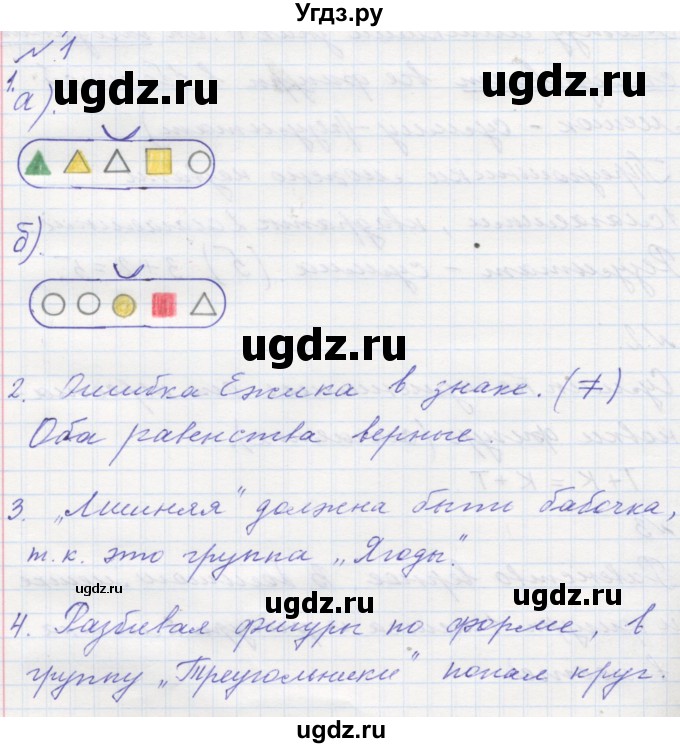 Угдз.ру
№1
ugdz.ru ugdz.ru
1. а).
б).
ugdz.ru
2. Ошибка Ежика в знаке. (≠)
Оба равенства верные.
3. „Лишняя" должна быть бабочка,
т.к. это группа „Ягоды".
ugdz.ru ugdz.ru
4. Разбивая фигуры по форме, в
группу „Треугольники" попал круг.
ugdz.ru